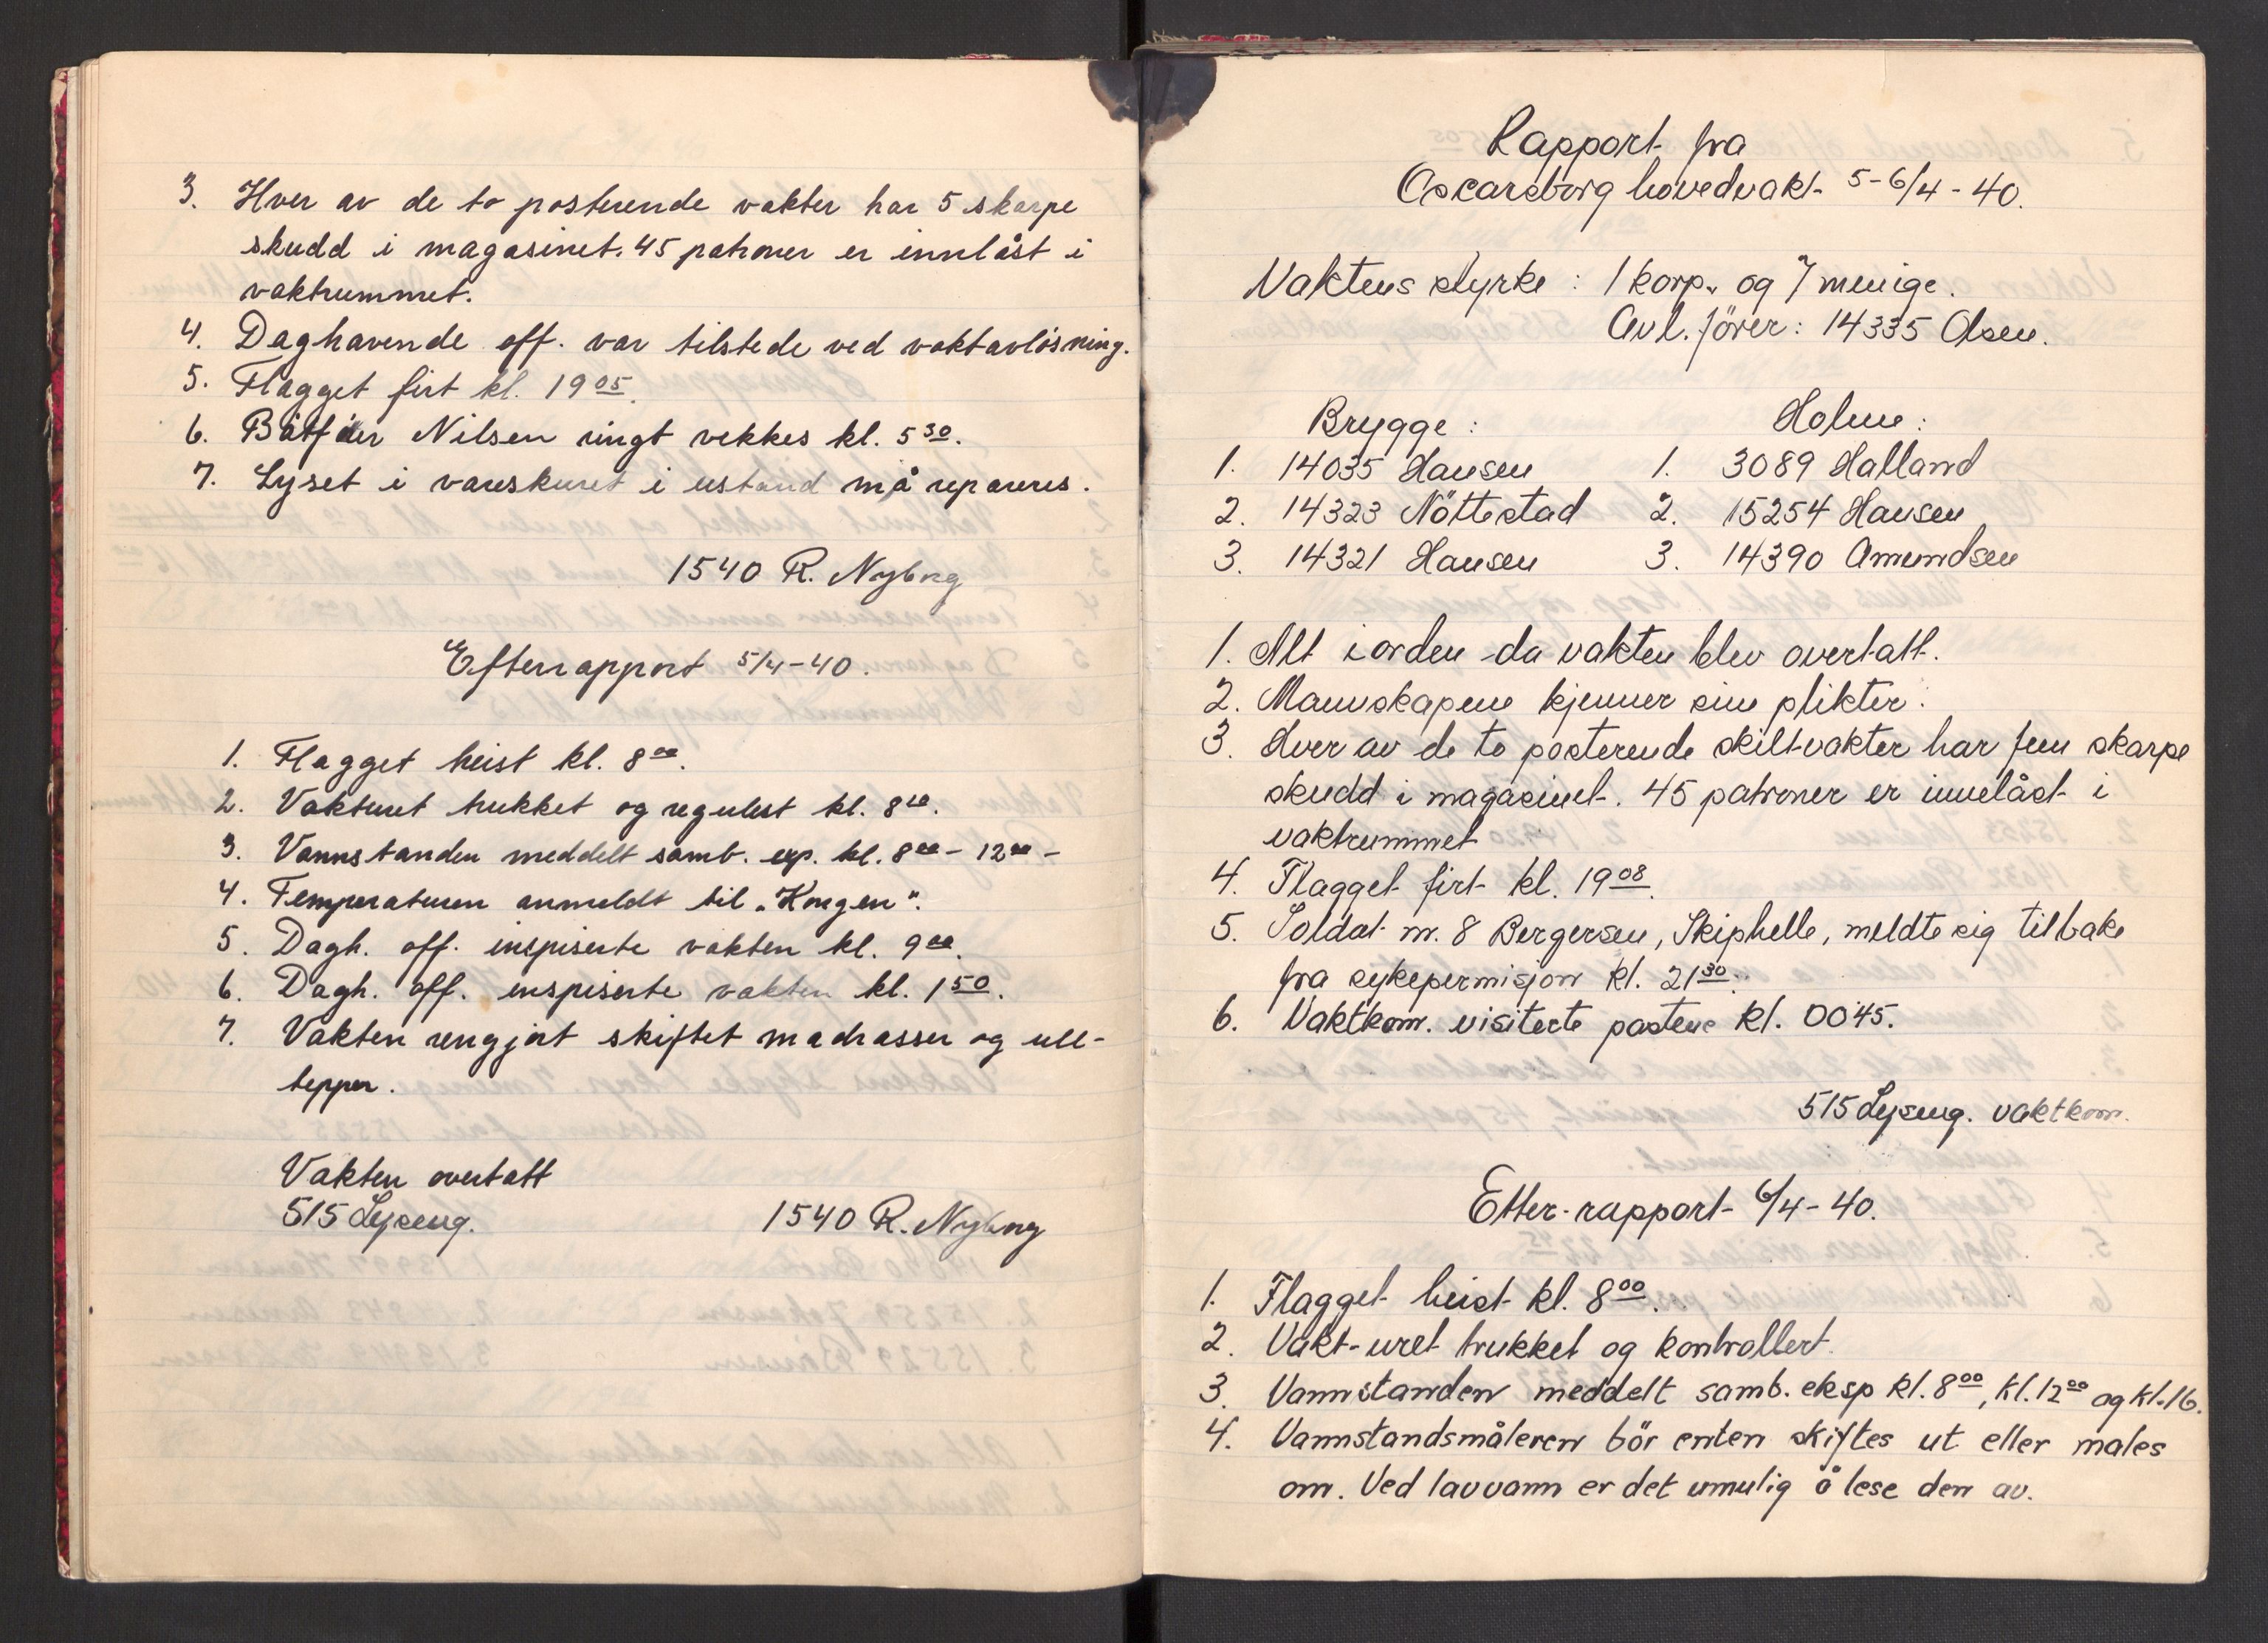 3. Hver av de to posterende vakter har 5 skarpe
skudd i magasinet. 45 patroner er innlåst i
vaktrummet.
4. Daghavende off. var tilstede ved vaktavløsning.
5. Flagget firt kl. 19 05.
6. Båtfører Nilsen ringt vekkes kl. 5 30.
7. Lyset i vareskuret i ustand må repareres.
1540 R. Nyborg
Efterrapport 5/4-40.
1. Flagget heist kl. 8 00.
2. Vakturet trukket og regulert kl. 8 10.
3. Vannstanden meddelt samb. exp. kl. 8 00 - 12 00 -
4. Temperaturen anmeldt til "Kongen".
5. Dagh. off. inspiserte vakten kl. 9 00.
6. Dagh. off. inspiserte vakten kl. 1 50.
7. Vakten rengjort skiftet madrasser og ull-
tepper.
Vakten overtatt
515 Lyseng. 1540 R. Nyborg
Rapport fra
Oscarsborg hovedvakt 5-6/4-40.
Vaktens styrke : 1 korp. og 7 menige.
Avl. förer: 14335 Olsen.
Brygge : Holme :
1. 14035 Hansen 1. 3089 Halland
2. 14323 Nöttestad 2. 15254 Hansen
3. 14321 Hansen 3. 14390 Amundsen
1. Alt iorden da vakten blev overtatt.
2. Mannskapene kjenner sine plikter.
3. Hver av de to posterende skiltvakter har fem skarpe
skudd i magasinet. 45 patroner er innelåst i
vaktrummet
4. Flagget firt kl. 19 08.
5. Soldat nr. 8 Bergersen, Skiphelle, meldte sig tilbake
fra sykepermisjon kl. 21 30.
6. Vaktkom. visiterte postene kl. 0045.
515 Lyseng. vaktkom.
Etter-rapport 6/4-40.
1. Flagget heist kl. 8 00.
2. Vakt-uret trukket og kontrollert.
3. Vannstanden meddelt samb. eksp kl. 8 00, kl. 12 00 og kl. 16.
4. Vannstandsmåleren bör enten skiftes ut eller males
om. Ved lavvann er det umulig å lese den av.